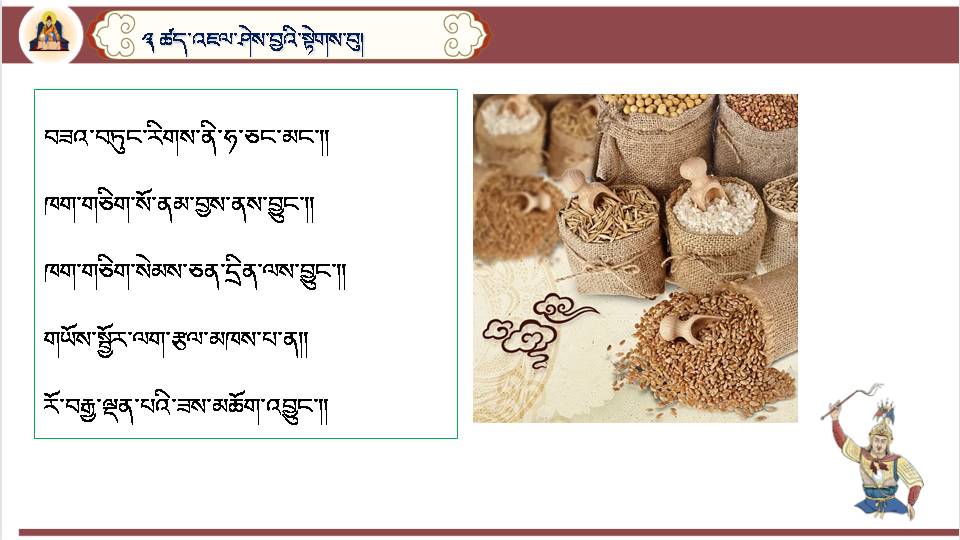 ༣ ཚད་འཇལ་ཤེས་བྱའི་སྟེགས་བུ།
བཟའ་བཏུང་རིགས་ནི་ཧ་ཅང་མང་།།
ཁག་གཅིག་སོ་ནམ་བྱས་ནས་བྱུང་།།
ཁག་གཅིག་སེམས་ཅན་དྲིན་ལས་བྱུང་།།
གཡོས་སྦྱོར་ལག་རྩལ་མཁས་པ་ན།།
རོ་བརྒྱ་ལྡན་པའི་ཟས་མཆོག་འབྱུང་།།